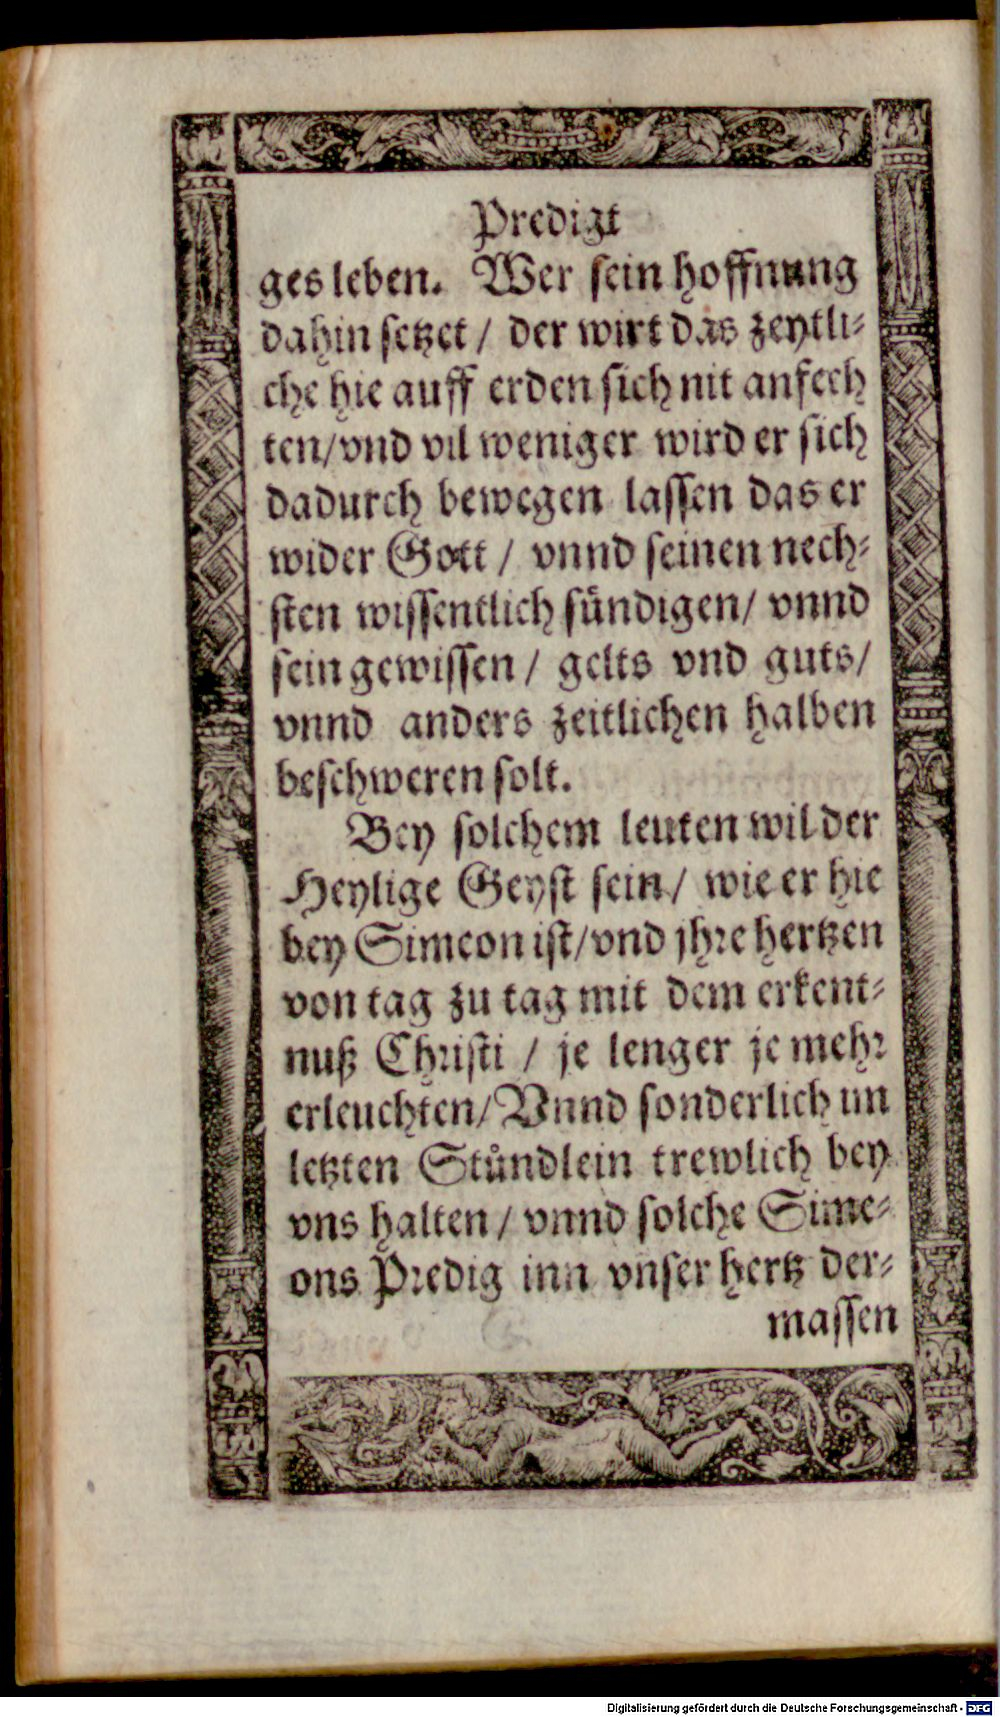 Predigt
ges leben. Wer sein hoffnung
dahin setzet / der wirt das zeytli-
che hie auff erden sich nit anfech
ten/vnd vil weniger wird er sich
dadurch bewegen lassen das er
wider Gott / vnnd seinen nech-
sten wissentlich sündigen/ vnnd
sein gewissen / gelts vnd guts/
vnnd anders zeitlichen halben
beschweren solt.
Bey solchem leuten wil der
Heylige Geyst sein/ wie er hie
bey Simeon ist/vnd jhre hertzen
von tag zu tag mit dem erkent-
nuß Christi / je lenger je mehr
erleuchten/Vnnd sonderlich im
letzten Stündlein trewlich bey
vns halten / vnnd solche Sime-
ons Predig inn vnser hertz der-
massen
Digitalisierung gefördert durch die Deutsche Forschungsgemeinschaft - DFG